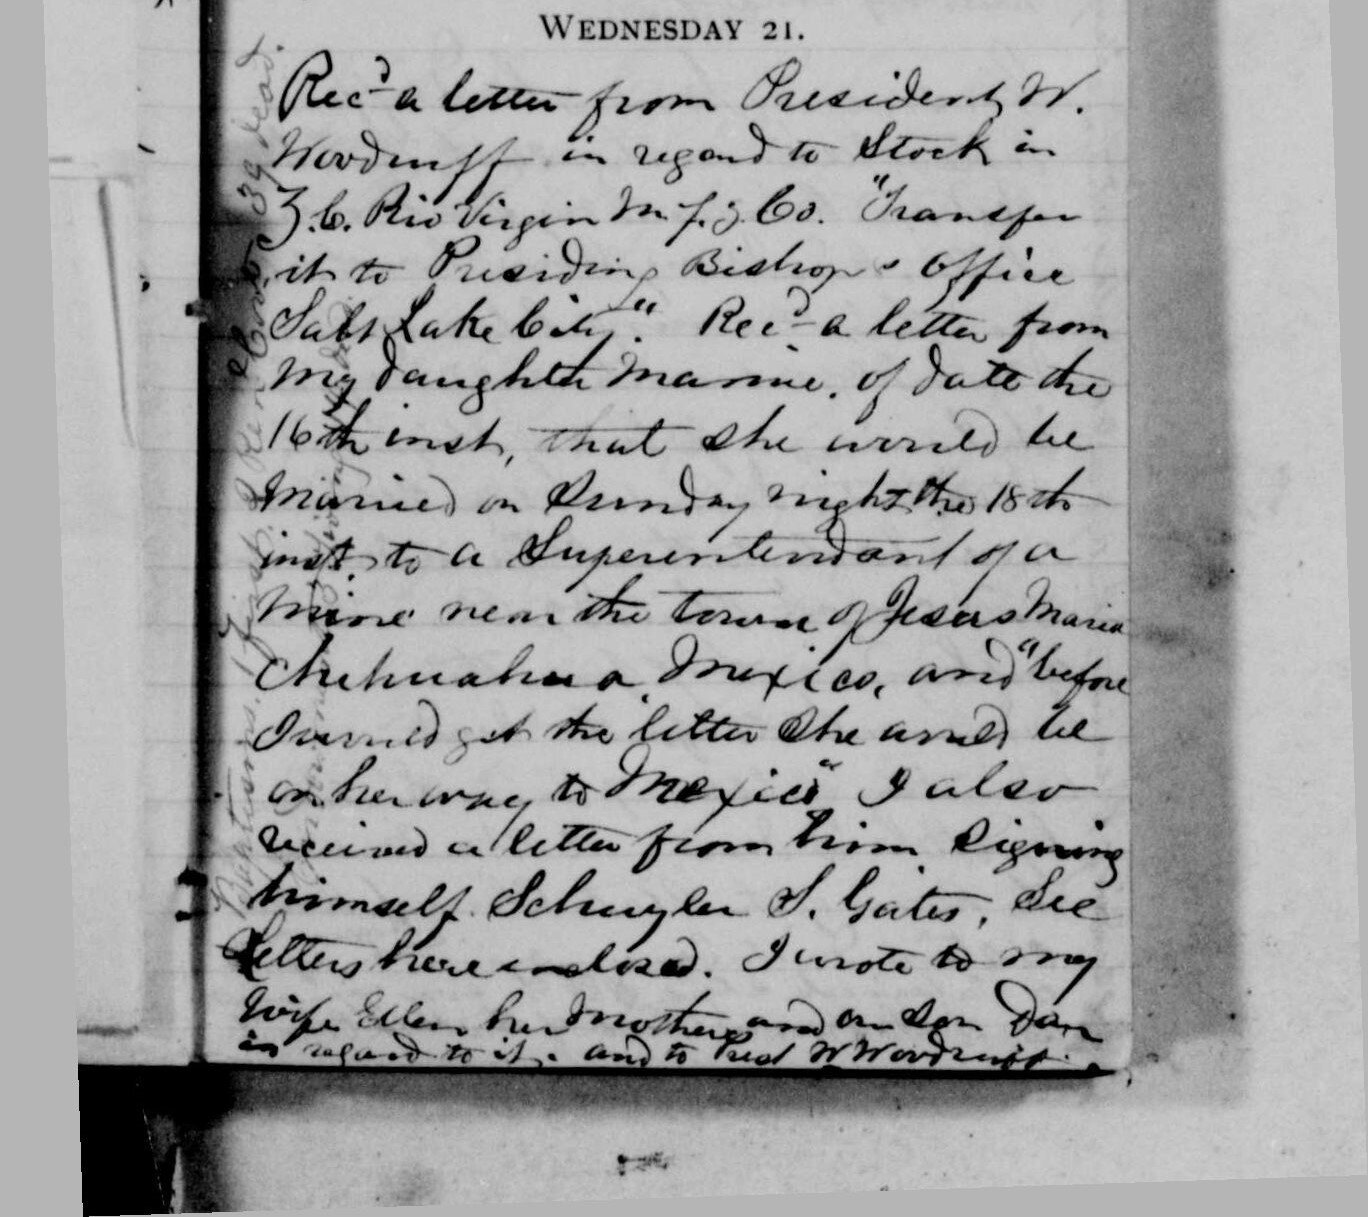 WEDNESDAY 21.
Rec'd a letter from President W.
Woodruff in regard to Stock in
Z. C. Rio Virgin M.f.g Co. "Transfer
it to Presiding Bishops Office
Salt Lake City." Rec'd a letter from
my daughter Mamie, of date the
16th inst, that she would be
Married on Sunday night the 18th
inst, to a Superentendant of a
Mine near the town of Jesus Maria
Chihuahua, Mexico, and "before
I would get the letter she would be
on her way to Mexico" I also
received a letter from him Signing
himself Schuyler S. Gates, See
Letters here enclosed. I wrote to my
Wife Ellen her Mother and our Son Dan
in regard to it. and to Prest W. Woodruff.
Baptisms. 1 first.
39 dead.